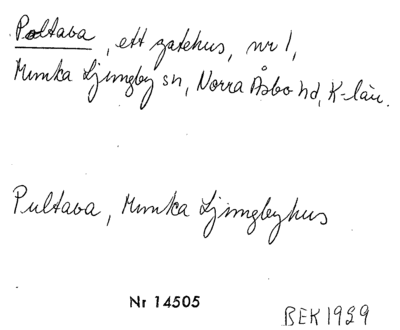 Poltava, ett gatehus, nr 1,
Munka Ljungby sn, Norra Åsbo hd, K-län.
Pultava, Munka Ljungbyhus
Nr 14505
BEK 1929